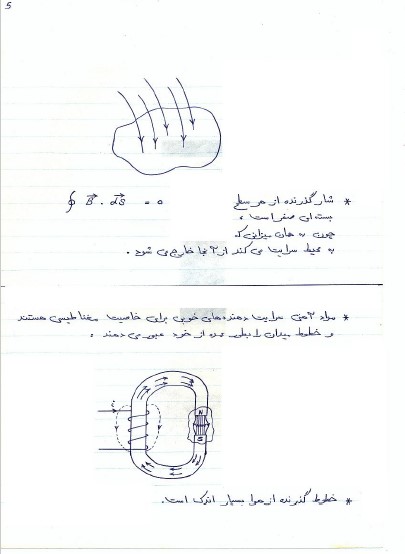 5
* شار گذرنده از هر سطح
بسته ای صفر است ،
∮ B⃗ . dS⃗ = 0
چون به همان میزانی که
به محیط سرایت می کند از آنجا خارج می شود .
* مواد آهنی سرایت دهنده های خوبی برای خاصیت مغناطیسی هستند
و خطوط میدان را بطور عمده از خود عبور می دهند .
i
N
S
* خطوط گذرنده از هوا بسیار اندک است .